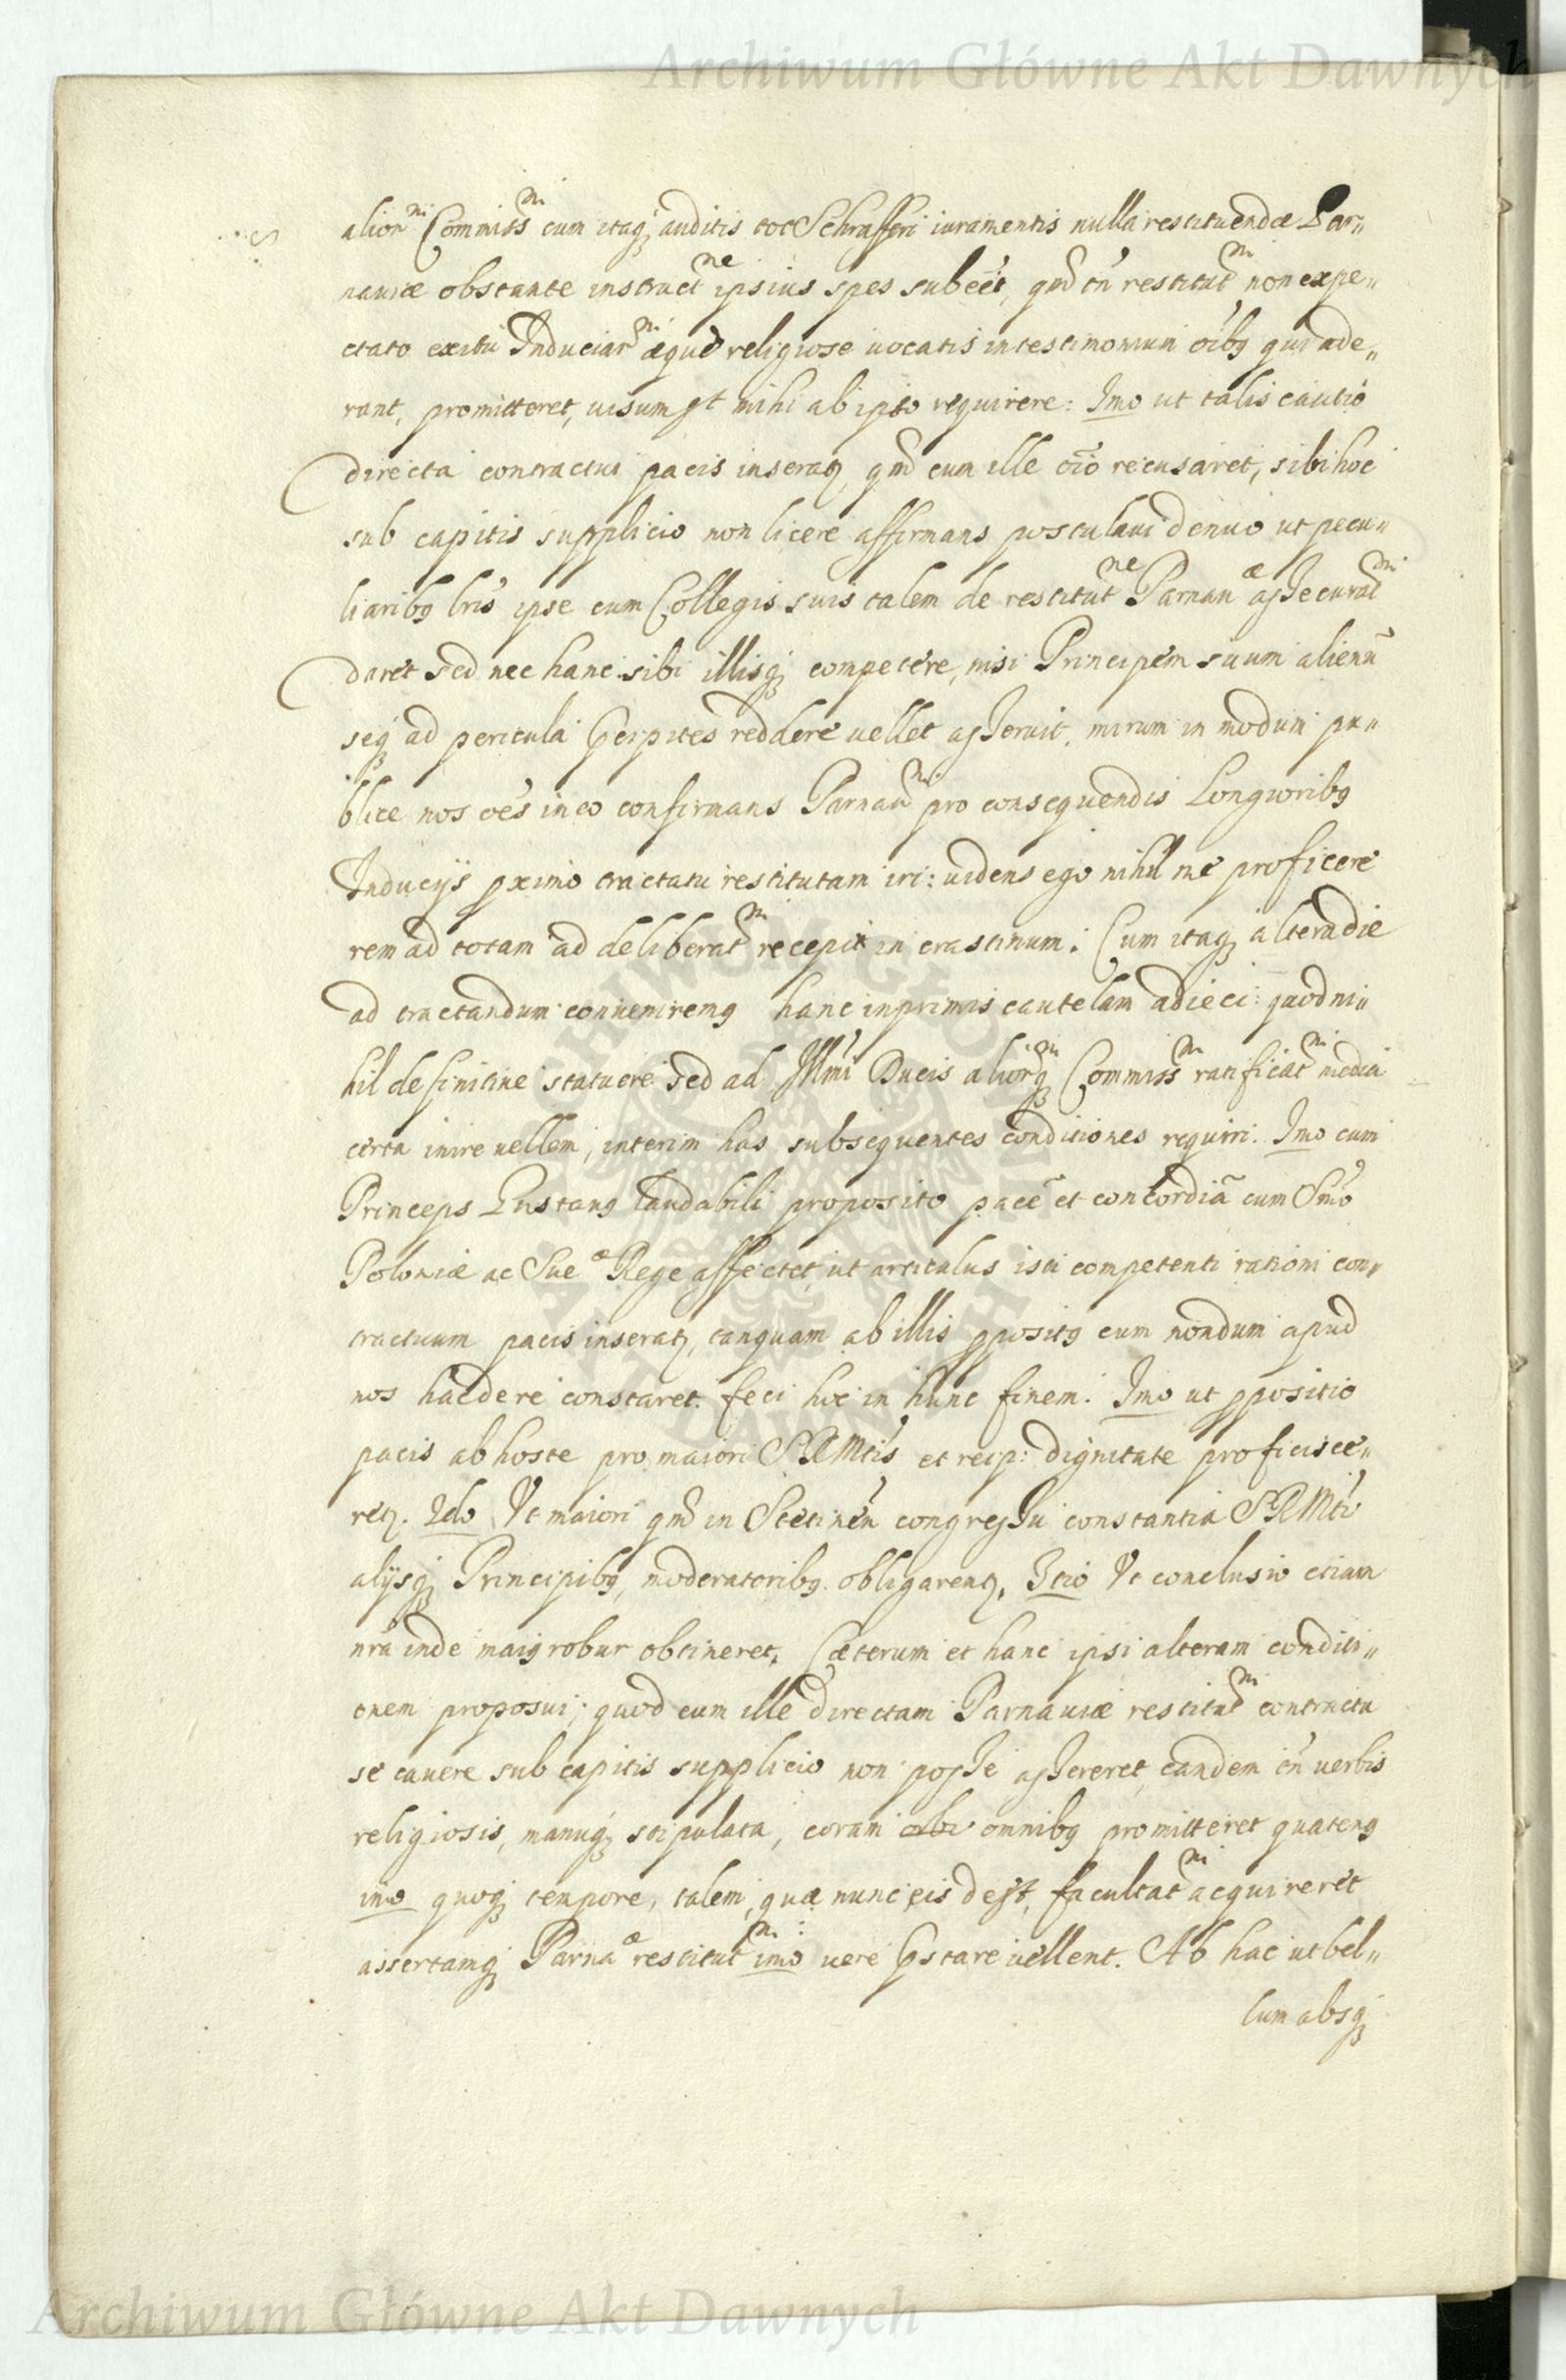 Archiwum Główne Akt Dawnych
alior^m Commiss^m cum itaq; auditis tot Schrafferi iuramentis nulla restituendæ Par„
nauiæ obstante instruct^ne ipsius spes subeēt, qm̄ tn̄ restitut^m non expe„
ctato exitu Induciar^m æque religiose uocatis in testimonium oībq qui ade„
rant, promitteret, uisum est mihi ab ipso requirere: Imo ut talis cautio
directa contractui pacis inseratq, qm̄ cum ille oīo recusaret, sibi hoc
sub capitis supplicio non licere affirmans postulaui denuo ut pecu„
liaribq lrīs ipse cum Collegis suis talem de restitut^ne Parnau^æ assecurat^m
daret sed nec hanc sibi illisq; competere, nisi Principem suum alienū
seq; ad pericula Præcipites reddere uellet asseruit, mirum in modum pu„
blice nos oēs in eo confirmans Parnau^m pro consequendis Longioribq
Inducijs pximo tractatu restitutam iri: uidens ego nihil me proficere
rem ad totam ad deliberat^m recepit in crastinum. Cum itaq; altera die
ad tractandum conueniremq hanc inprimis cautelam adieci: quod ni„
hil definitiue statuere sed ad Illmi Ducis alior^mq; Commiss^m ratificat^m media
certa inire uellem, interim has subsequentes conditiones requiri. Imo cum
Princeps Gustauq laudabili proposito pacē et concordiā cum Smo
Poloniæ ac Sue^æ Rege affectet, ut articulus isti competenti rationi con„
tractuum pacis inseratq, tanquam ab illis ppositq cum nondum apud
nos hac de re constaret. feci hoc in hunc finem. Imo ut ppositio
pacis ab hoste pro maiori SRMtis et reip: dignitate proficisce„
retq. 2do Vt maiori qm̄ in Stetinen̄ congressu constantia SRMti
alijsq; Principibq, moderatoribq obligarentq. 3tio Vt conclusio etiam
nrā inde maiq robur obtineret. Cæterum et hanc ipsi alteram conditi„
onem proposui; quod cum ille directam Parnauiæ restitut^m contractu
se cauere sub capitis supplicio non posse assereret, eandem tn̄ uerbis
religiosis, manuq; stipulata, coram omnibq promitteret quatenq
imo quoq; tempore, talem, quæ nunc eis deest, facultat^m acquireret
assertamq; Parna^æ restitut^m imo uere Præstare uellent. Ab hac ut bel„
lum absq;
Archiwum Główne Akt Dawnych